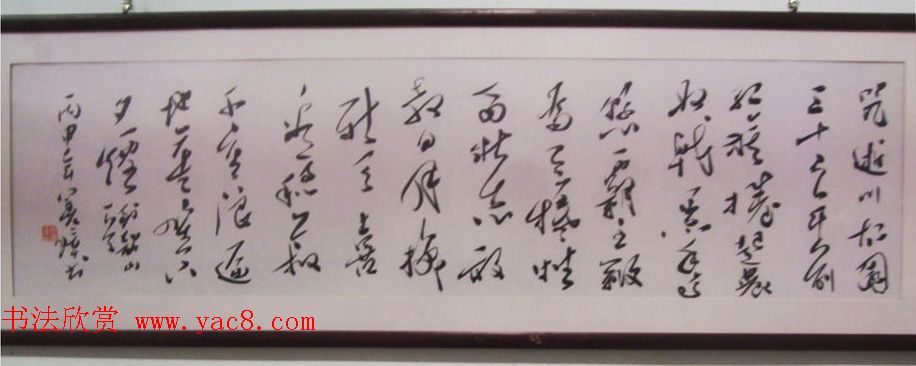 咒逝川故園
三十二年前
红旗捲起農
奴戟黑手高
懸霸主鞭
為有犧牲
多壮志敢
教日月换
新天喜
看稻菽
千重浪遍
地英雄下
夕煙 韶山
丙申 书
书法欣赏 www.yac8.com